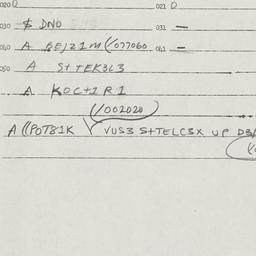 020 0 021 0
030 $ DNO 031 —
040 A BEJZ1M (077060 041 —
050 A S+TEK3L3
A KOC+1R1
(/002020)
A ((POT81K VUS3 S+TELC3X UP